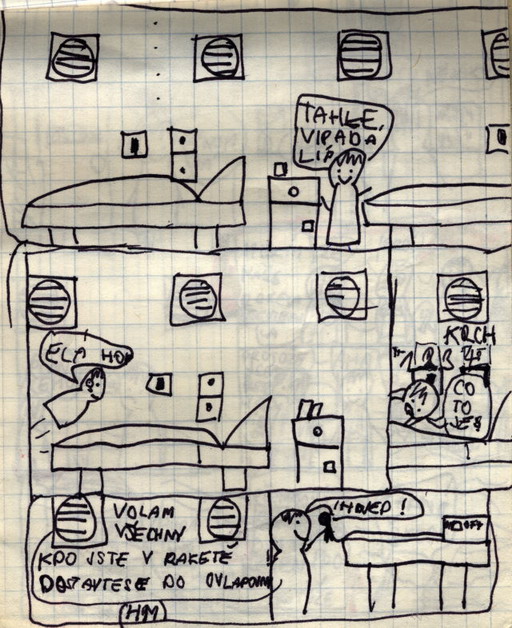 TAHLE.
VIPADA
LIP
KRCH
CO
TO
JE
VOLAM
VŠECHNY
KDO JSTE V RAKETĚ
DOSTAVTESE DO OVLADOVNY
IHNED!
HM